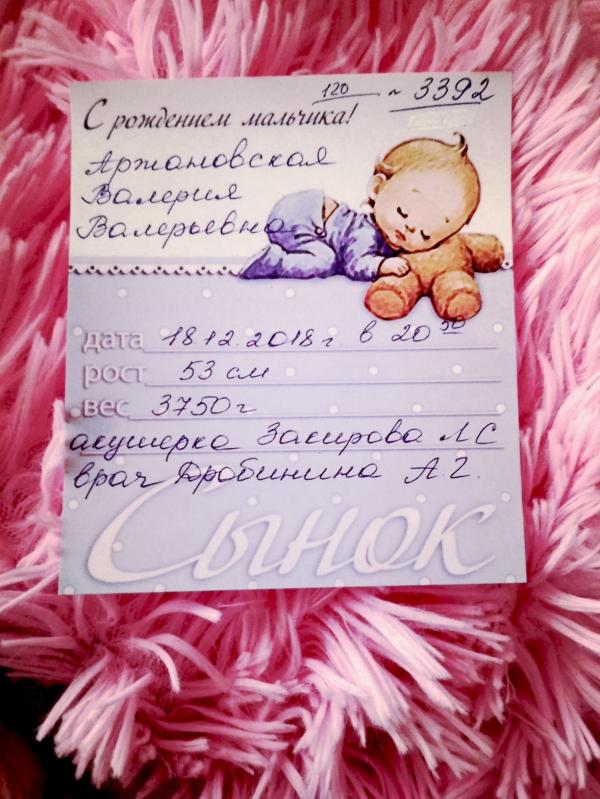 120 ~ 3392
С рождением мальчика!
Аржановская
Валерия
Валерьевна
дата 18.12.2018г в 20 50
рост 53 см
вес 3750г
акушерка Закирова Л С
врач Дробинина А.Г.
Сынок